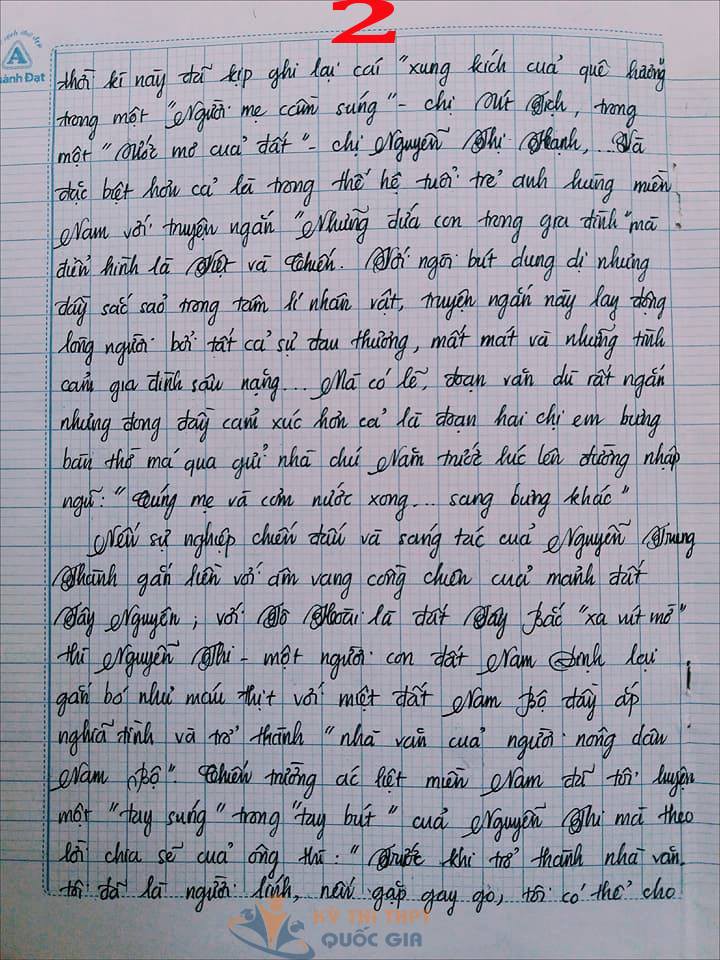 2
A
thời kì này đã kịp ghi lại cái "xung kích của quê hương
trong một "Người mẹ cầm súng" - chị Út Tịch, trong
một "Ước mơ của đất" - chị Nguyễn Thị Hạnh,... Và
đặc biệt hơn cả là trong thế hệ tuổi trẻ anh hùng miền
Nam với truyện ngắn "Những đứa con trong gia đình" mà
điển hình là Việt và Chiến. Với ngòi bút dung dị nhưng
đầy sắc sảo trong tâm lí nhân vật, truyện ngắn này lay động
lòng người bởi tất cả sự đau thương, mất mát và những tình
cảm gia đình sâu nặng... Mà có lẽ, đoạn văn dù rất ngắn
nhưng đong đầy cảm xúc hơn cả là đoạn hai chị em bưng
bàn thờ má qua gửi nhà chú Năm trước lúc lên đường nhập
ngũ: "Cúng mẹ và cơm nước xong... sang bưng khác"
Nếu sự nghiệp chiến đấu và sáng tác của Nguyễn Trung
Thành gắn liền với âm vang cồng chiên của mảnh đất
Tây Nguyên; với Tô Hoài là đất Tây Bắc "xa vút mờ"
thì Nguyễn Thi - một người con đất Nam Định lại
gắn bó như máu thịt với miệt đất Nam Bộ đầy ắp
nghĩa tình và trở thành "nhà văn của người nông dân
Nam Bộ". Chiến trường ác liệt miền Nam đã tôi luyện
một "tay súng" trong "tay bút" của Nguyễn Thi mà theo
lời chia sẻ của ông thì: "Trước khi trở thành nhà văn,
tôi đã là người lính, nếu gặp gay go, tôi có thể cho
KỲ THI THPT
QUỐC GIA